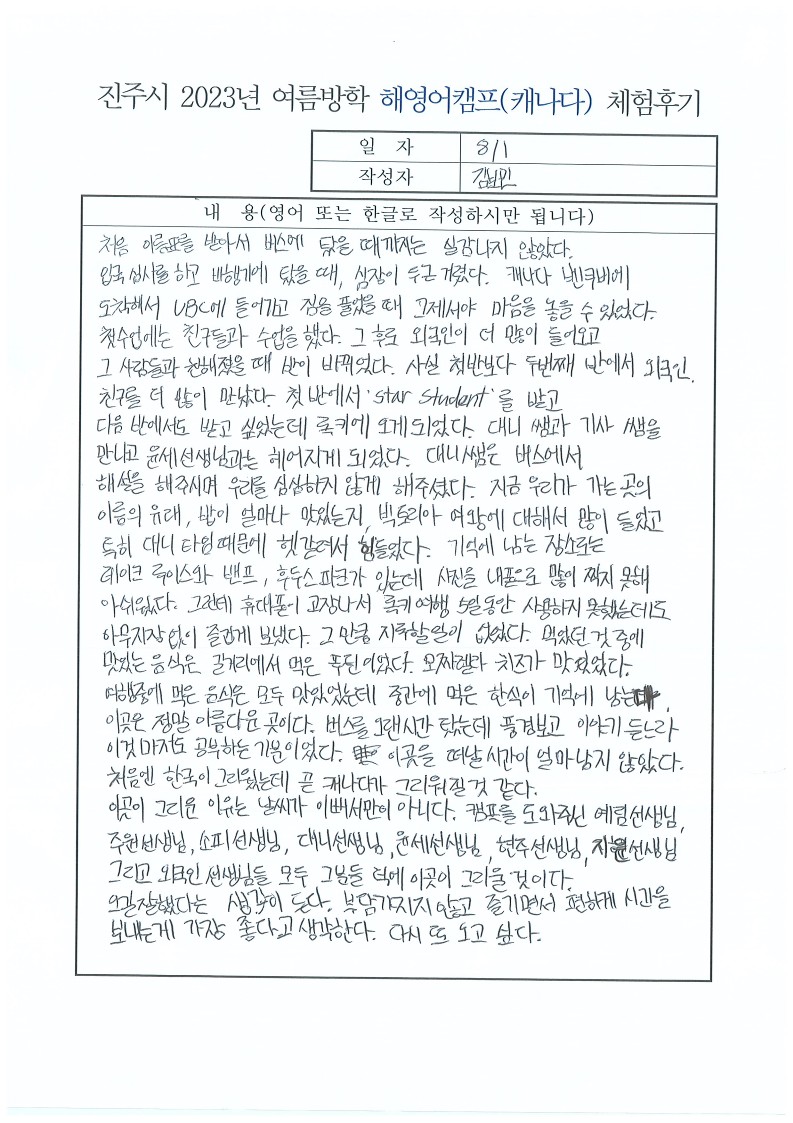 진주시 2023년 여름방학 해영어캠프(캐나다) 체험후기
일 자 8/1
작성자
내 용(영어 또는 한글로 작성하시만 됩니다)
처음 이름표를 받아서 버스에 탔을 때까지는 실감나지 않았다.
입국 심사를 하고 비행기에 탔을 때, 심장이 두근거렸다. 캐나다 밴쿠버에
도착해서 UBC에 들어가고 짐을 풀었을 때 그제서야 마음을 놓을 수 있었다.
첫수업에는 친구들과 수업을 했다. 그 후로 외국인이 더 많이 들어오고
그 사람들과 친해졌을 때 반이 바뀌었다. 사실 첫반보다 두번째 반에서 외국인
친구를 더 많이 만났다. 첫 반에서 'star student'를 받고
다음 반에서도 받고 싶었는데 록키에 오게 되었다. 대니 쌤과 기사 쌤을
만나고 윤세선생님과는 헤어지게 되었다. 대니쌤은 버스에서
해설을 해주시며 우리를 심심하지 않게 해주셨다. 지금 우리가 가는 곳의
이름의 유래, 밥이 얼마나 맛있는지, 빅토리아 여왕에 대해서 많이 들었고
특히 대니 타임 때문에 헷갈려서 힘들었다. 기억에 남는 장소로는
레이크 루이스와 밴프, 후두스 파크가 있는데 사진을 내폰으로 많이 찍지 못해
아쉬웠다. 그런데 휴대폰이 고장나서 록키여행 5일동안 사용하지 못했는데도
아무지장 없이 즐겁게 보냈다. 그 만큼 지루할 일이 없었다. 먹었던 것 중에
맛있는 음식은 길거리에서 먹은 푸틴이었다. 모짜렐라 치즈가 맛있었다.
여행중에 먹은 음식은 모두 맛있었는데 중간에 먹은 한식이 기억에 남는다.
이곳은 정말 아름다운 곳이다. 버스를 오랜시간 탔는데 풍경보고 이야기 듣느라
이것마저도 공부하는 기분이었다. 이곳을 떠날 시간이 얼마남지 않았다.
처음엔 한국이 그리웠는데 곧 캐나다가 그리워질 것 같다.
이곳이 그리운 이유는 날씨가 이뻐서만이 아니다. 캠프를 도와주신 예림선생님,
주원선생님, 소피선생님, 대니선생님, 윤세선생님, 현주선생님, 지원선생님
그리고 외국인 선생님들 모두 그분들 덕에 이곳이 그리울 것이다.
오길잘했다는 생각이 든다. 부담가지지 않고 즐기면서 편하게 시간을
보내는게 가장 좋다고 생각한다. 다시 또 오고 싶다.